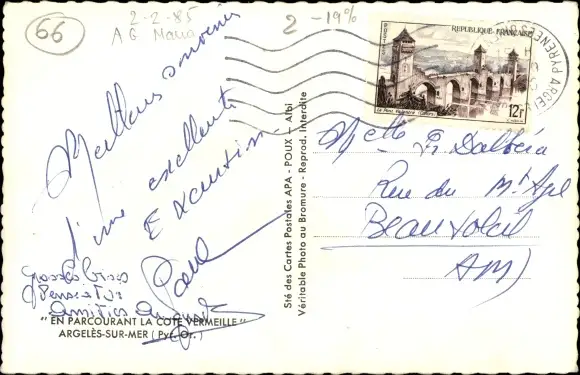 66
2-2-85
A G Maria
2 - 19%
Meilleurs souvenirs
d'une excellente
Excursion
Paul
Amitiés
"EN PARCOURANT LA COTE VERMEILLE"
ARGELÈS-SUR-MER (Pyr. Or.)
Sté des Cartes Postales APA - POUX - Albi
Véritable Photo au Bromure - Reprod. Interdite
REPUBLIQUE FRANÇAISE
POSTES
Le Pont Valentré (Cahors)
12F
ARGELES
PYRENEES
Melle Dalbéra
Rue du Mt Agel
BEAUSOLEIL
AM)